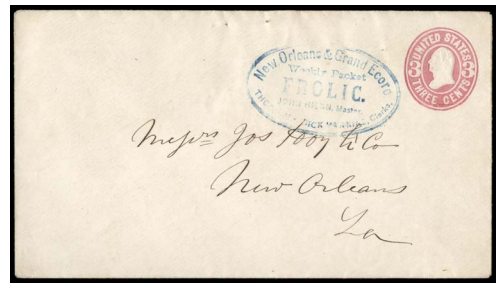 New Orleans & Grand Ecore
Weekly Packet
FROLIC.
JOHN HIENN, Master
DICK Clerks.
UNITED STATES
3 3
THREE CENTS
Messrs Jos Hoy & Co
New Orleans
La